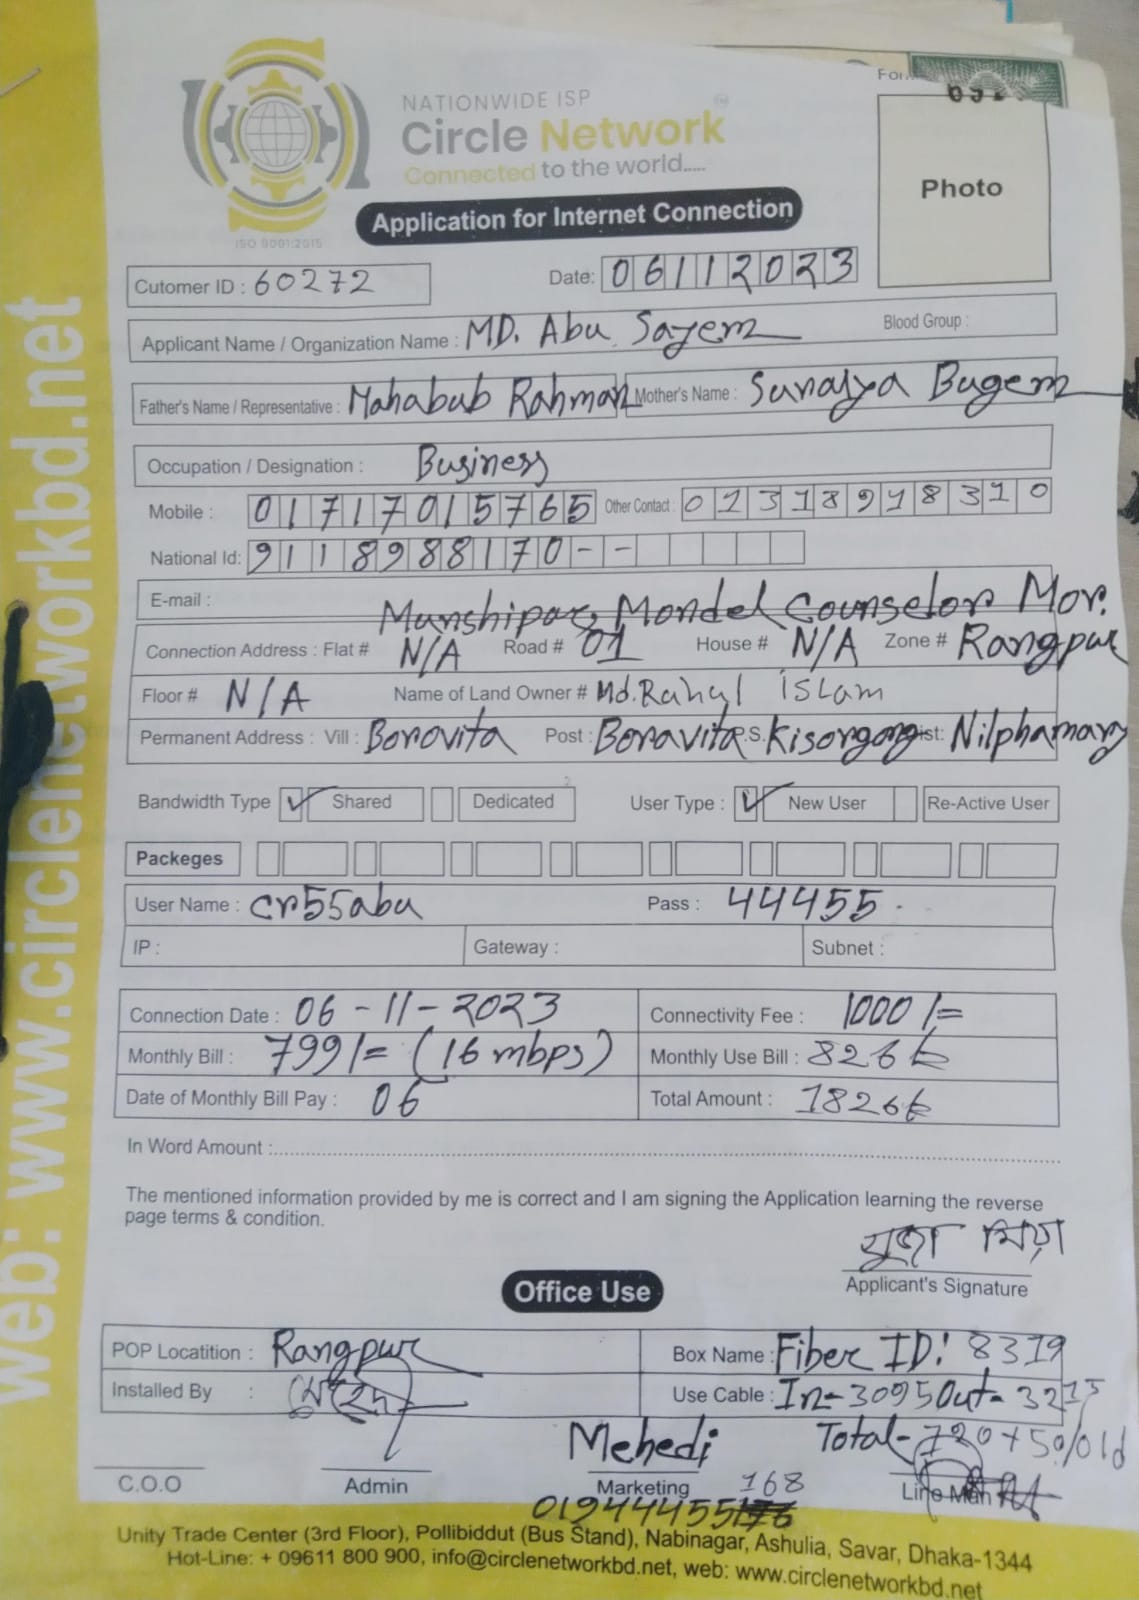 For
NATIONWIDE ISP
Circle Network
Connected to the world.....
ISO 9001:2015
Photo
Application for Internet Connection
Cutomer ID : 60272
Date: 06112023
Applicant Name / Organization Name : MD. Abu Sayem
Blood Group :
Father's Name / Representative : Mahabub Rahman Mother's Name : Sunaiya Bugem
Occupation / Designation : Business
Mobile : 01717015765 Other Contact : 01318918310
National Id: 9118988170--
E-mail :
Munshipara, Mondel Counselor Mor.
Connection Address : Flat # N/A Road # 01 House # N/A Zone # Rangpur
Floor # N/A Name of Land Owner # Md. Rahul islam
Permanent Address : Vill : Borovita Post : Boravita P.S. Kisorgong ist: Nilphamary
Bandwidth Type ✓ Shared Dedicated User Type : ✓ New User Re-Active User
Packeges
User Name : cr55abu Pass : 44455.
IP : Gateway : Subnet :
Connection Date : 06-11-2023 Connectivity Fee : 1000/=
Monthly Bill : 799/= (16 mbps) Monthly Use Bill : 826৳
Date of Monthly Bill Pay : 06 Total Amount : 1826৳
In Word Amount :
The mentioned information provided by me is correct and I am signing the Application learning the reverse
page terms & condition.
Applicant's Signature
Office Use
POP Locatition : Rangpur Box Name : Fiber ID: 8319
Installed By : Use Cable : In-3095 Out-3215
Mehedi Total-120+50/old
C.O.O Admin Marketing Line Man
168
01944455
Unity Trade Center (3rd Floor), Pollibiddut (Bus Stand), Nabinagar, Ashulia, Savar, Dhaka-1344
Hot-Line: + 09611 800 900, info@circlenetworkbd.net, web: www.circlenetworkbd.net
web: www.circlenetworkbd.net